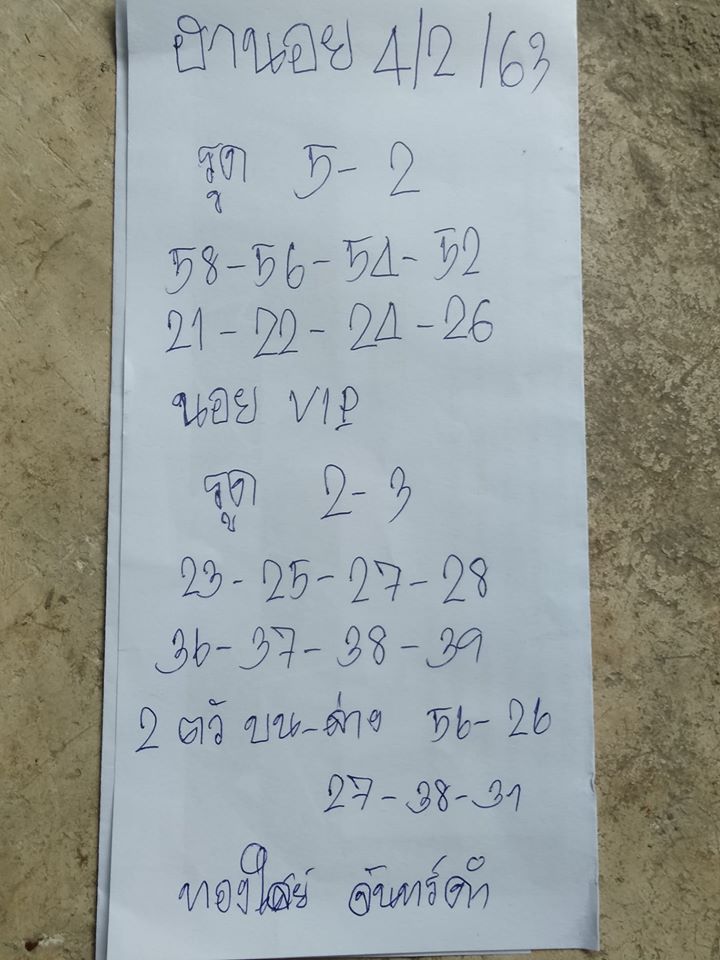 ฮานอย 4/2/63
รูด 5-2
58-56-54-52
21-22-24-26
นอย VIP
รูด 2-3
23-25-27-28
36-37-38-39
2 ตัว บน-ล่าง 56-26
27-38-31
จันทร์คำ